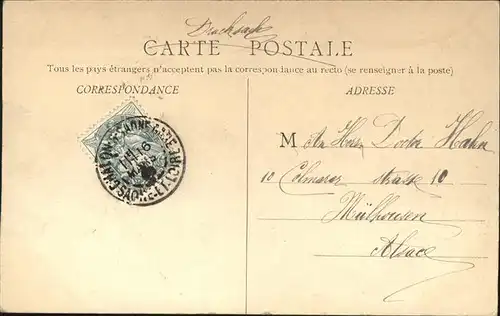 Drucksache
CARTE POSTALE
Tous les pays étrangers n'acceptent pas la correspondance au recto (se renseigner à la poste)
CORRESPONDANCE
ADRESSE
M An Herrn Doctor Hahn
10 Colmarer strasse 10
Mülhausen
Alsace
SAONE-ET-LOIRE